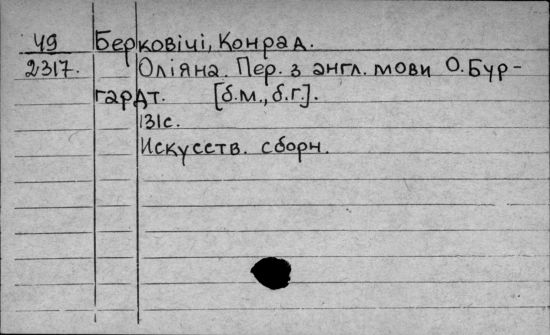 49 Берковічі, Конрад.
2317. Оліяна. Пер. з англ. мови О. Бур-
гардт. [б.м., б.г.].
131с.
Искусств. сборн.